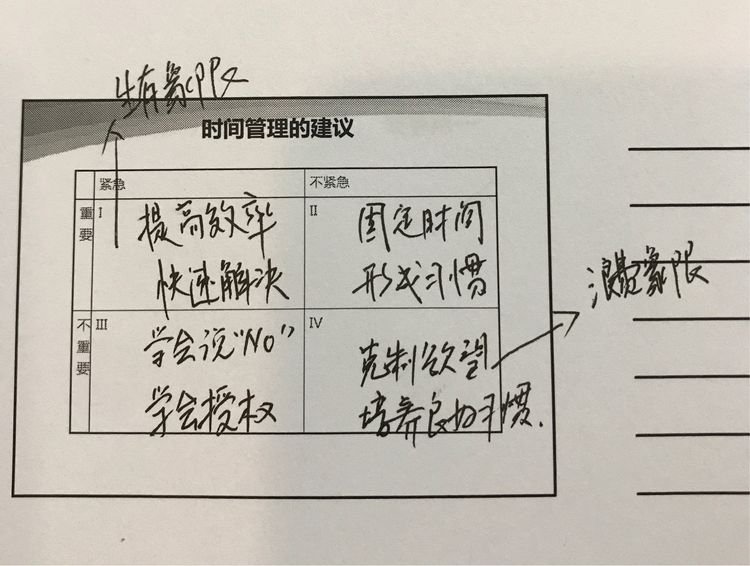 象限
时间管理的建议
紧急 不紧急
重要
I
提高效率
快速解决
II
固定时间
形成习惯
不重要
III
学会说"NO"
学会授权
IV
克制欲望
培养良好习惯.
浪费象限